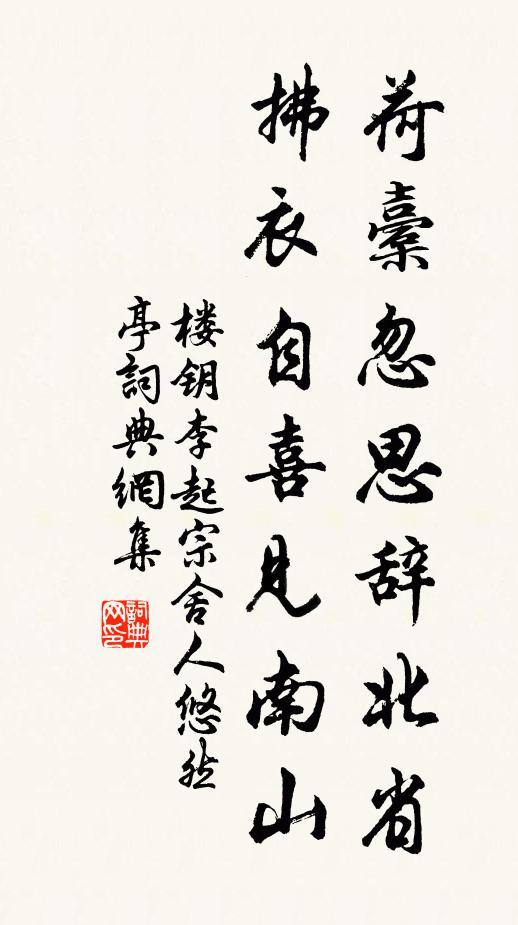 荷橐忽思辞北省
拂衣自喜见南山
楼钥李起宗舍人悠然
亭詞典網集
詞典
网印